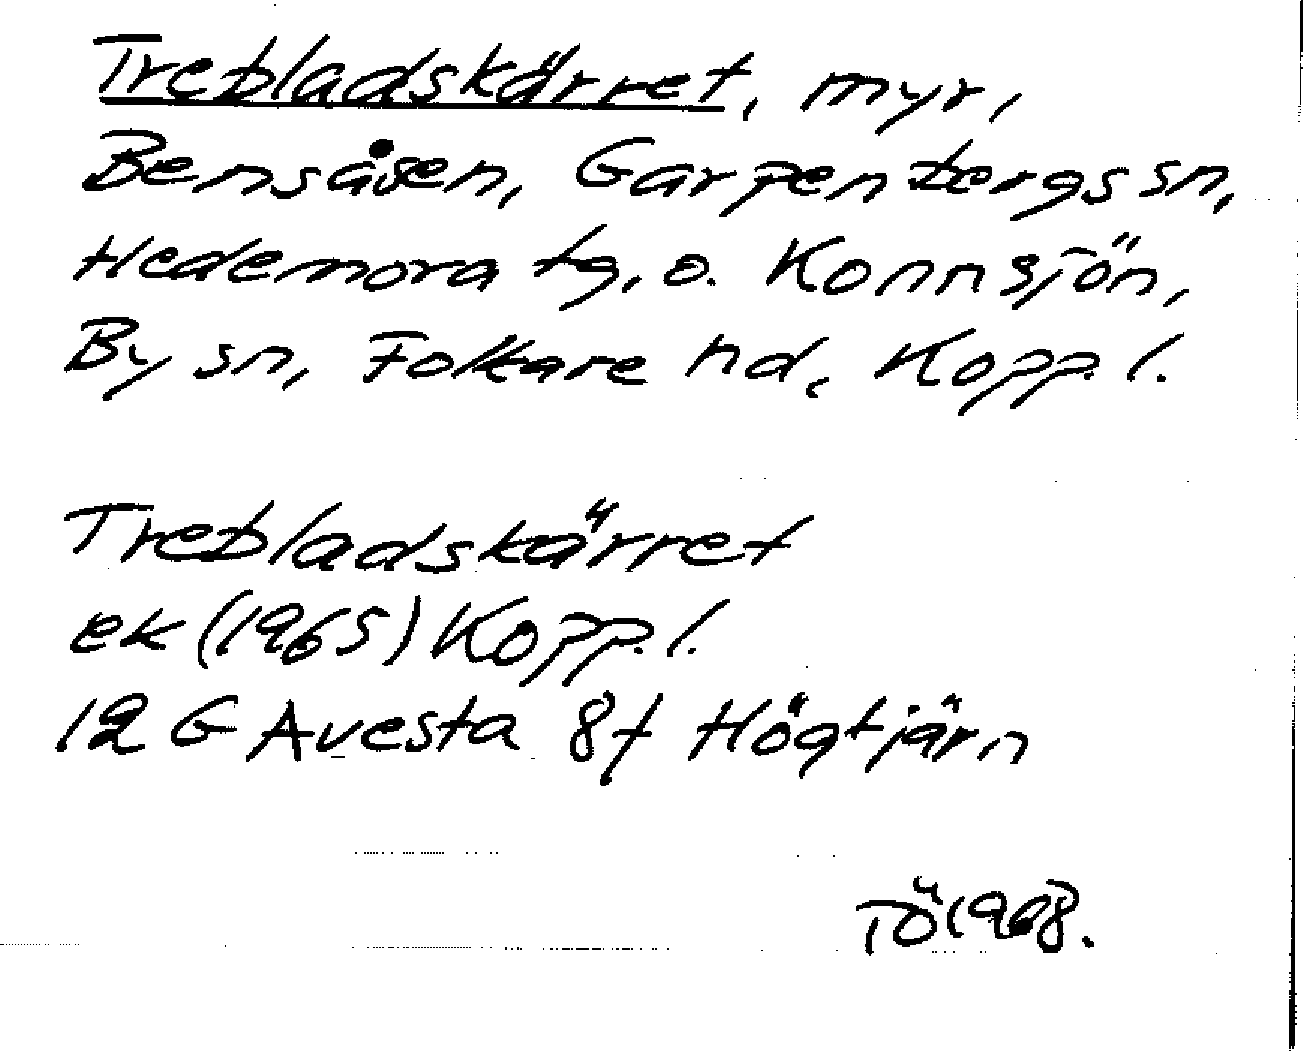 Trebladskärret, myr,
Bensåsen, Garpenbergs sn,
Hedemora tg, o. Konnsjön,
By sn, Folkare hd, Kopp. l.
Trebladskärret
ek (1965) Kopp. l.
12 G Avesta 8f Högtjärn
TÖ 1968.